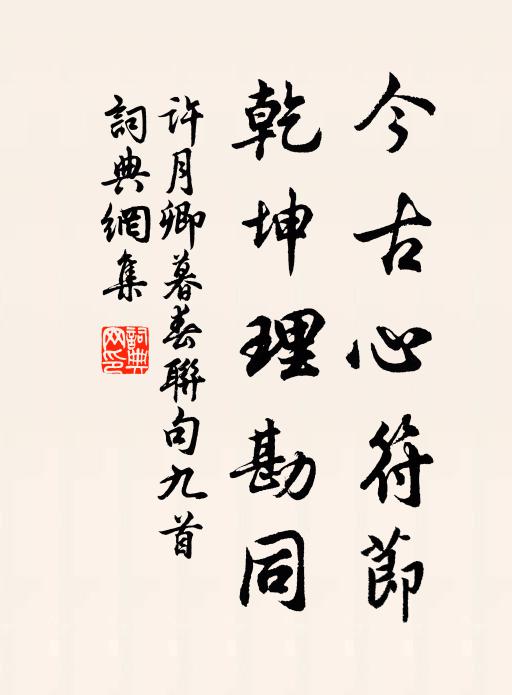 今古心符節
乾坤理勘同
許月卿暮春聯句九首
詞典網集
詞典網印